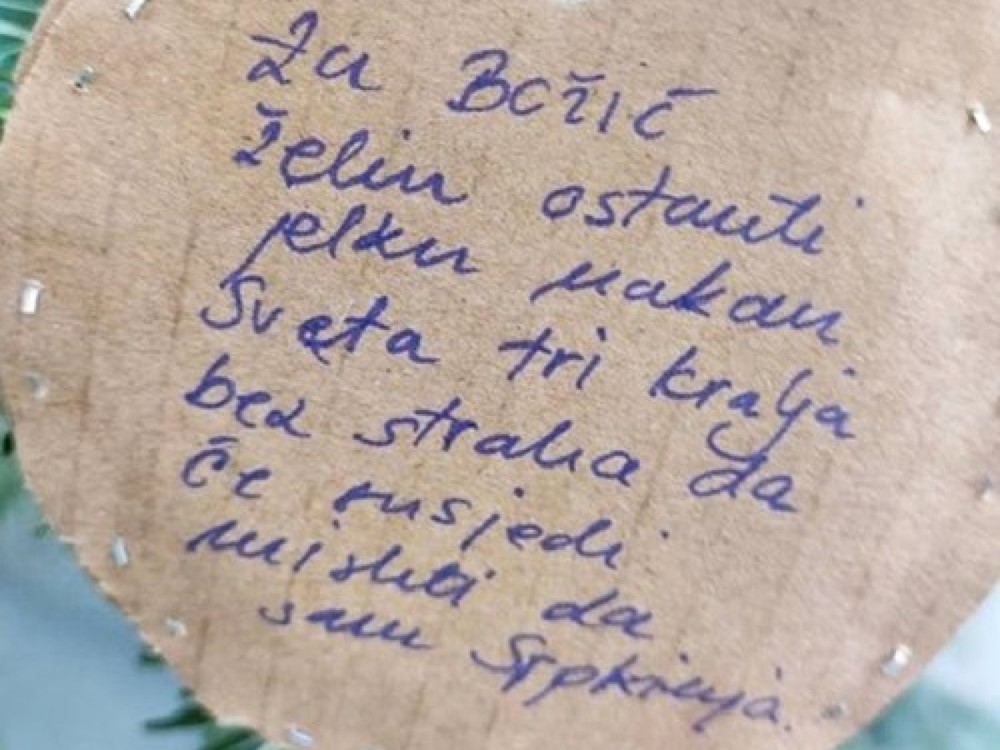 Za Božič
želim ostaviti
jelku nakon
Sveta tri kralja
bez straha da
če susjedi
misliti da
sam Srpkinja.